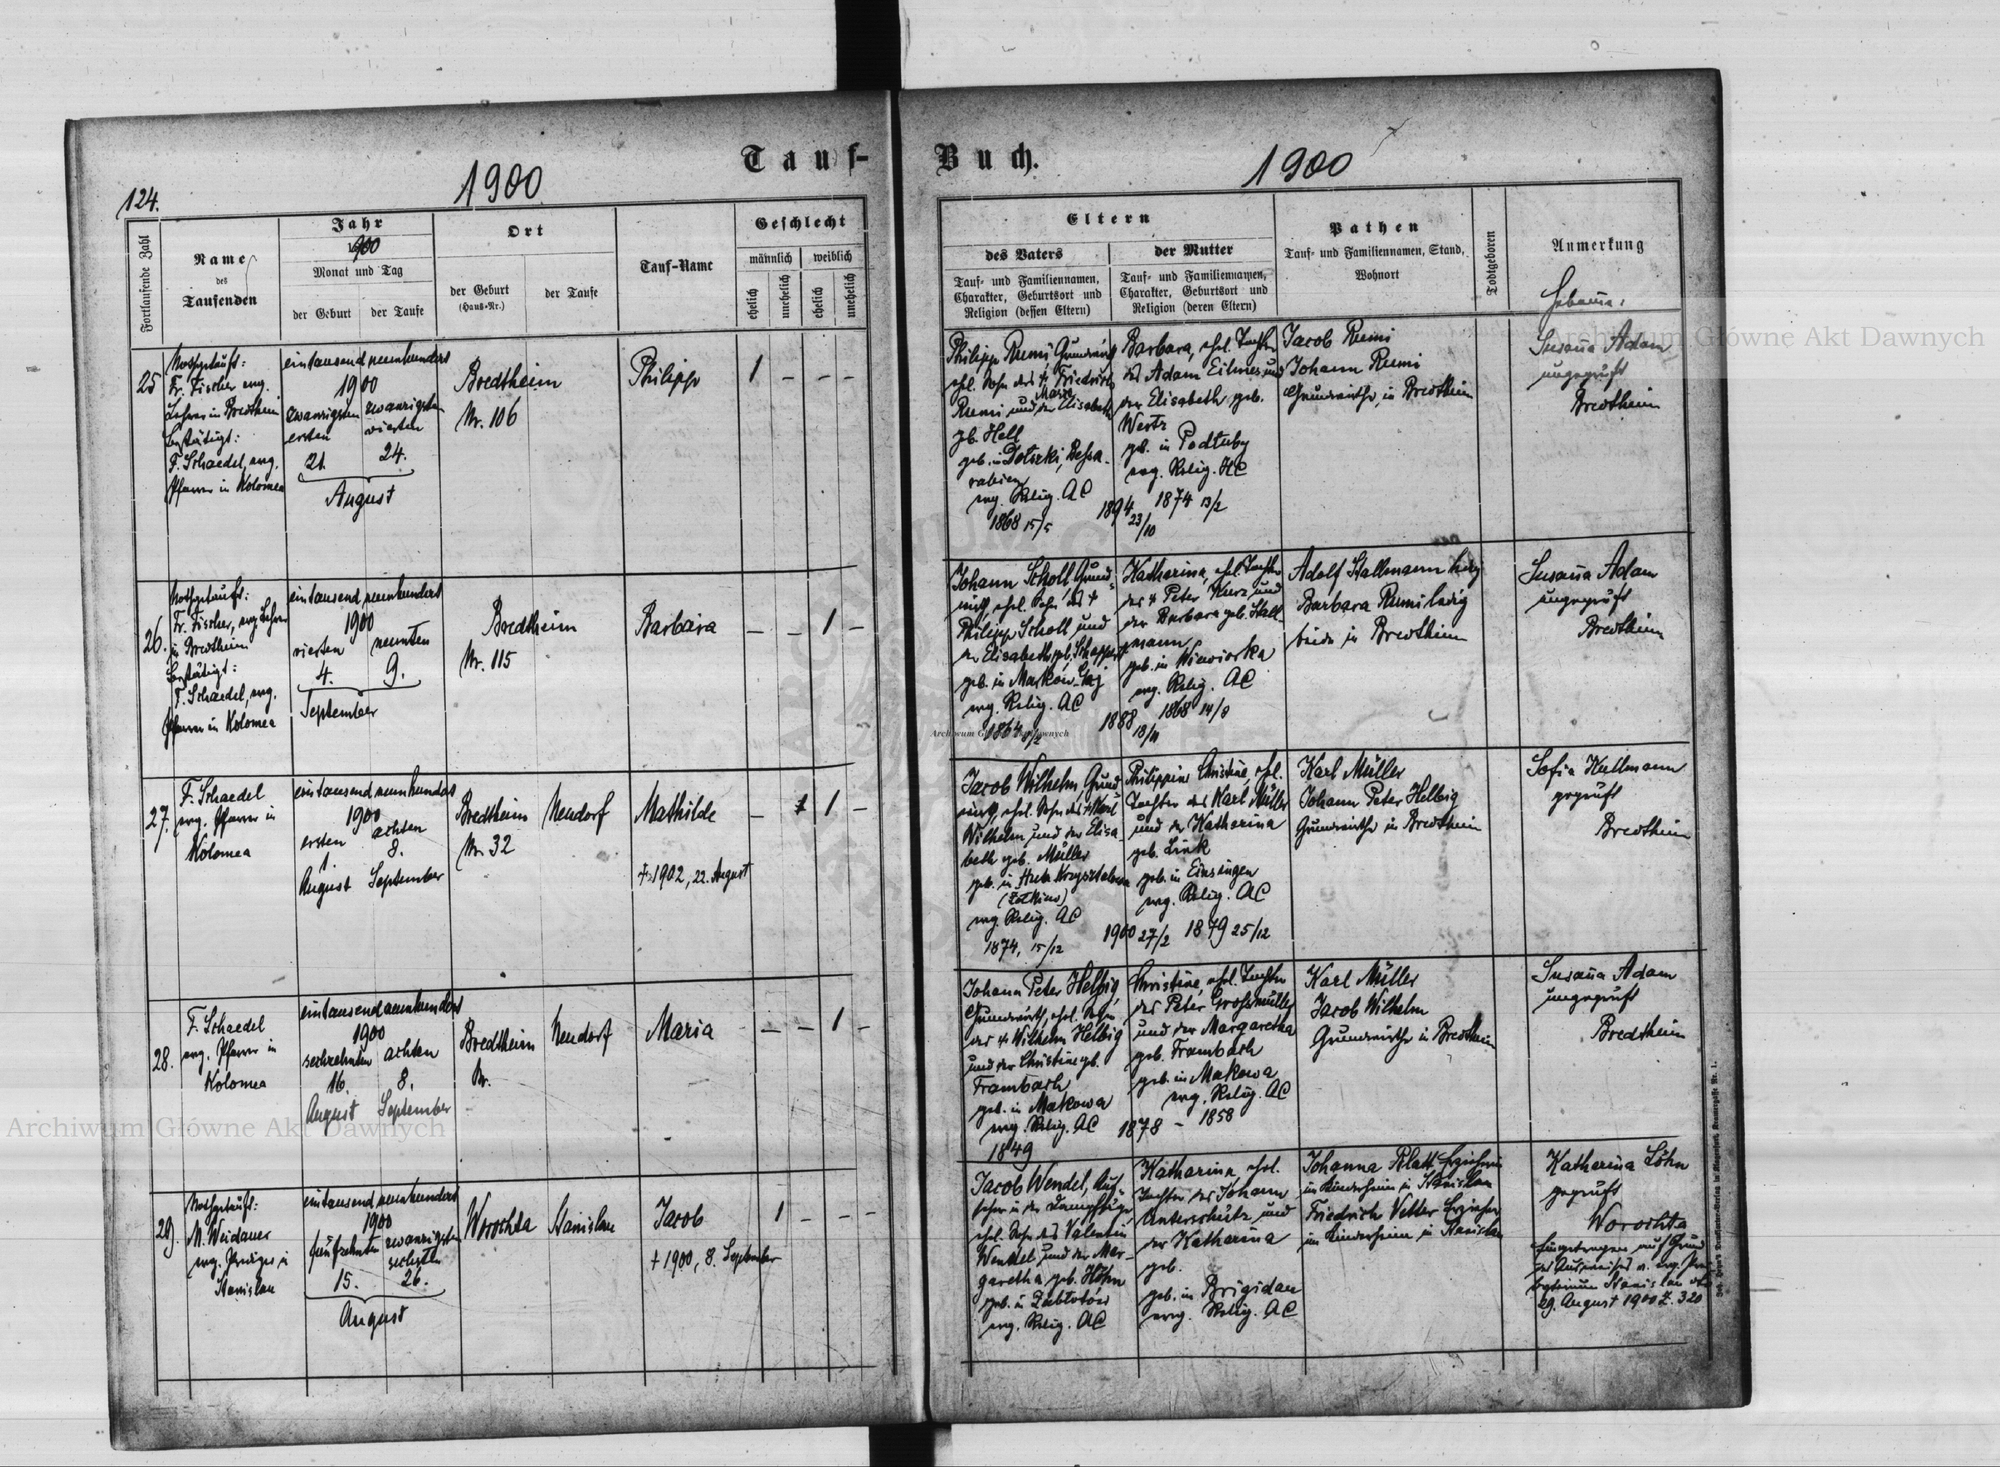 Tauf-
1900
124.
Fortlaufende Zahl
Name
des
Taufenden
Jahr
1900
Monat und Tag
der Geburt
der Taufe
Ort
der Geburt
(Haus-Nr.)
der Taufe
Tauf-Name
Geschlecht
männlich
weiblich
ehelich
unehelich
ehelich
unehelich
25
Nothgetauft:
Fr. Fischer evg.
Lehrer in Bredtheim
bestätigt:
F. Schaedel, evg.
Pfarrer in Kolomea
eintausend neunhundert
1900
zwanzigsten
ersten
21.
zwanzigsten
vierten
24.
August
Bredtheim
Nr. 106
Philipp
1 – – –
26.
Nothgetauft:
Fr. Fischer, evg. Lehrer
in Bredtheim
bestätigt:
F. Schaedel, evg.
Pfarrer in Kolomea
eintausend neunhundert
1900
vierten neunten
4. 9.
September
Bredtheim
Nr. 115
Barbara
– – 1 –
27.
F. Schaedel
evg. Pfarrer in
Kolomea
eintausend neunhundert
1900
ersten achten
1. 8.
August September
Bredtheim
Nr. 32
Neudorf
Mathilde
† 1902, 22. August
– 1 –
28.
F. Schaedel
evg. Pfarrer in
Kolomea
eintausend neunhundert
1900
sechzehnten achten
16. 8.
August September
Bredtheim
Nr.
Neudorf
Maria
– – 1 –
29.
Nothgetauft:
M. Weidauer
evg. Prediger in
Stanislau
eintausend neunhundert
1900
fünfzehnten zwanzigsten
sechsten
15. 26.
August
Worochta
Stanislau
Jacob
† 1900, 8. September
1 – – –
Buch.
1900
Eltern
des Vaters
Tauf- und Familiennamen,
Charakter, Geburtsort und
Religion (dessen Eltern)
der Mutter
Tauf- und Familiennamen,
Charakter, Geburtsort und
Religion (deren Eltern)
Pathen
Tauf- und Familiennamen, Stand,
Wohnort
Todtgeboren
Anmerkung
Philipp Rumi, Grundwirth
ehl. Sohn des † Friedrich
Rumi und der Marie Elisabeth
gb. Hell
geb. in Bessa-
rabien
evg. Relig. AC
1868 15/5
1894
23/10
Barbara, ehl. Tochter
des Adam Eilmes und
der Elisabeth geb.
Wertz
geb. in Podłuby
evg. Relig. HC
1874 13/2
Jacob Rumi
Johann Rumi
Grundwirthe in Bredtheim
Hebamme:
Susana Adam
ungeprüft
Bredtheim
Johann Scholl, Grund-
wirth, ehl. Sohn des †
Philipp Scholl und
der Elisabeth gb.
geb. in
evg. Relig. AC
1888
13/11
Katharina, ehl. Tochter
des † Peter Kurz und
der Barbara geb. Stall-
mann
geb. in Wiewiorka
evg. Relig. AC
1868 14/8
Adolf Stallmann
Barbara Rumi ledig
beide in Bredtheim
Susana Adam
ungeprüft
Bredtheim
Jacob Wilhelm, Grund-
wirth, ehl. Sohn des † Karl
Wilhelm und der Elisa-
beth geb. Müller
geb. in
evg. Relig. AC
1874, 15/12
1900 27/2
Philippine Christine, ehl.
Tochter des Karl Müller
und der Katharina
geb. Link
geb. in Einsingen
evg. Relig. AC
1879 25/12
Karl Müller
Johann Peter Helbig
Grundwirthe in Bredtheim
Sofia Kullmann
geprüft
Bredtheim
Johann Peter Helbig,
Grundwirth, ehl. Sohn
des † Wilhelm Helbig
und der Christine gb.
Frambach
geb. in Makowa
evg. Relig. AC
1849
1878 –
Christine, ehl. Tochter
des Peter Grossmüller
und der Margaretha
geb. Frambach
geb. in Makowa
evg. Relig. AC
1858
Karl Müller
Jacob Wilhelm
Grundwirthe in Bredtheim
Susana Adam
ungeprüft
Bredtheim
Jacob Wendel, Auf-
seher in der Dampfsäge
ehl. Sohn des Valentin
Wendel und der Mar-
garetha geb. Höhn
geb. in Zabłotów
evg. Relig. AC
Katharina, ehl.
Tochter des Johann
Unterschütz und
der Katharina
geb.
geb. in Brigidau
evg. Relig. AC
Johanna Platt Erzieherin
im Kinderheim in Stanislau
Friedrich Vetter Erzieher
im Kinderheim in Stanislau
Katharina Löhn
geprüft
Worochta
Eingetragen auf Grund
des Ausweises v. evg. Pres-
byterium Stanislau vom
29. August 1900 Z. 320
Archiwum Główne Akt Dawnych
Archiwum Główne Akt Dawnych
Archiwum Główne Akt Dawnych